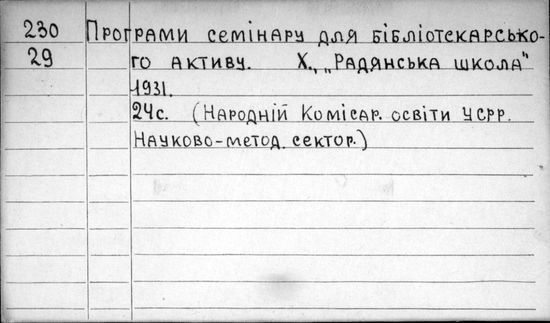 230 Програми семінару для бібліотекарсько-
29 го активу. Х., „Радянська школа"
1931.
24с. (Народній Комісар. освіти УСРР.
Науково-метод. сектор.)